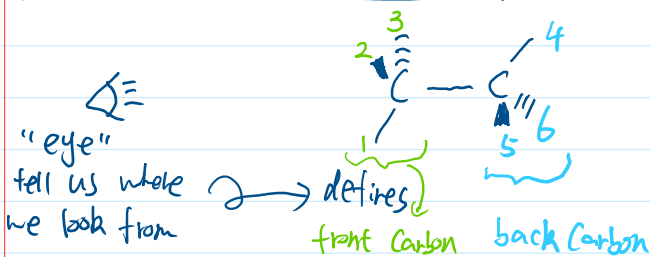 3
2
4
C — C
6
1
5
"eye"
tell us where
we look from
defines
front Carbon
back Carbon